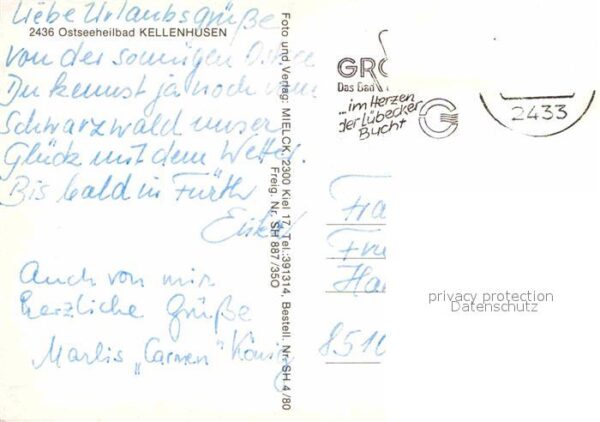 Liebe Urlaubsgrüße
2436 Ostseeheilbad KELLENHUSEN
von der sonnigen Ostsee
Du kennst ja noch vom
Schwarzwald unser
Glück mit dem Wetter.
Bis bald in Fürth
Auch von mir
herzliche Grüße
Marlis „Carmen" König
Foto und Verlag: MIELCK, 2300 Kiel 17, Tel.:391314, Bestell. Nr. SH 4/80
Freig. Nr. SH 887/350
GRÖ
Das Bad
...im Herzen
der Lübecker
Bucht
2433
Fra
Ha
8510
privacy protection
Datenschutz